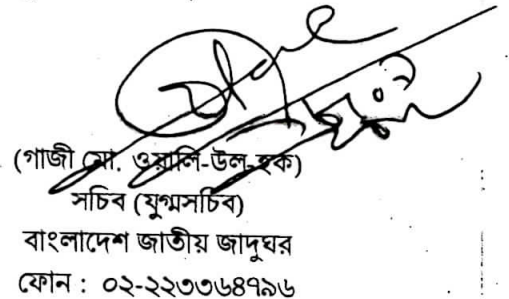 (গাজী মো. ওয়ালি-উল-হক)
সচিব (যুগ্মসচিব)
বাংলাদেশ জাতীয় জাদুঘর
ফোন : ০২-২২৩৩৬৪৭৯৬